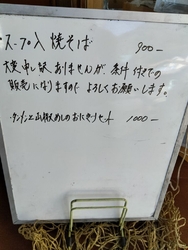 スープ入焼そば 900ー
大変申し訳ありませんが、条件付きでの
販売になりますので よろしくお願いします。
めしのおにぎりセット 1000ー